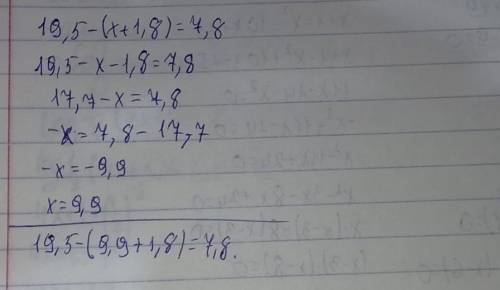 19,5-(x+1,8)=7,8
19,5-x-1,8=7,8
17,7-x=7,8
-x=7,8-17,7
-x=-9,9
x=9,9
19,5-(9,9+1,8)=7,8.